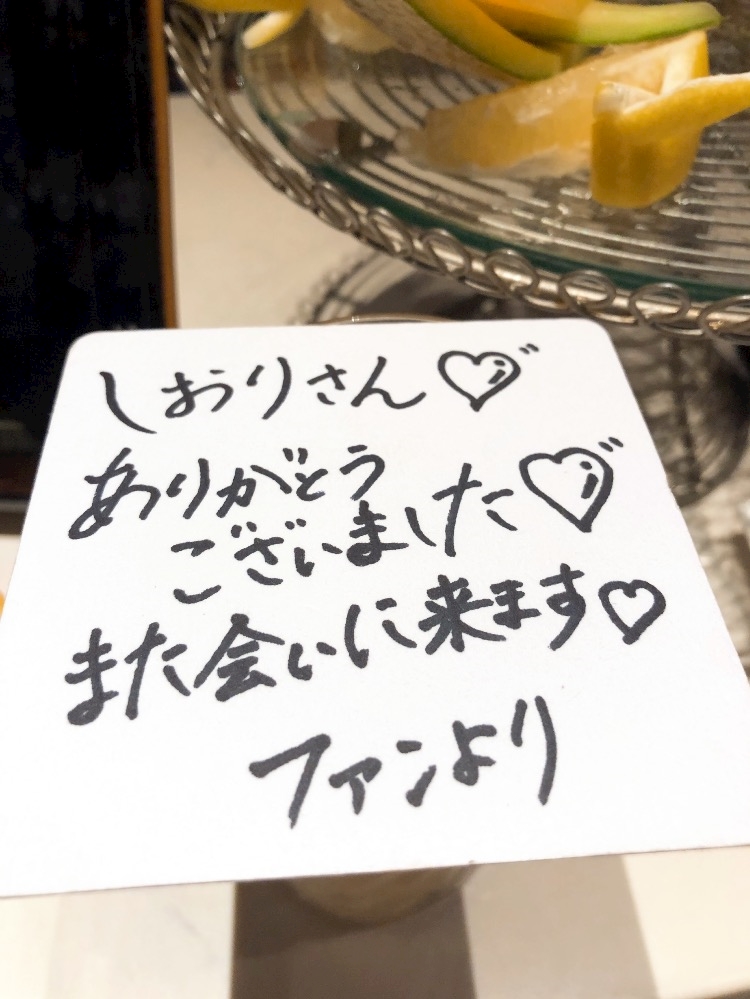 しおりさん♡
ありがとう
ございました♡
また会いに来ます♡
ファンより